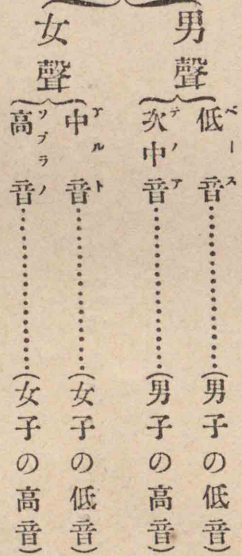 男聲
低音ベース………………(男子の低音)
次中音テノア………………(男子の高音)
女聲
中音アルト………………(女子の低音)
高音ソプラノ………………(女子の高音)